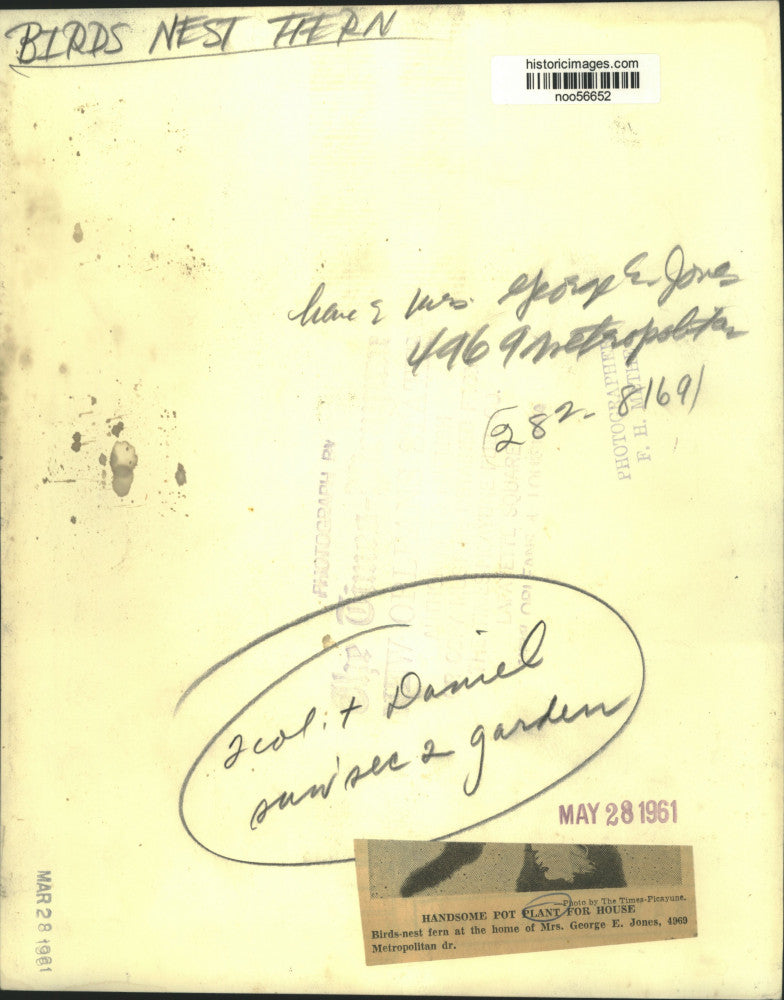 BIRDS NEST FHERN
historicimages.com
noo56652
Mrs. George E. Jones
4969 Metropolitan
282-8169
PHOTOGRAPHED
F. H. METHE
PHOTOGRAPH BY
The Times-
NEW ORLEANS
LAFAYETTE SQUARE
2 col. + Daniel
sun sec 2 garden
MAY 28 1961
—Photo by The Times-Picayune.
HANDSOME POT PLANT FOR HOUSE
Birds-nest fern at the home of Mrs. George E. Jones, 4969
Metropolitan dr.
MAR 28 1961